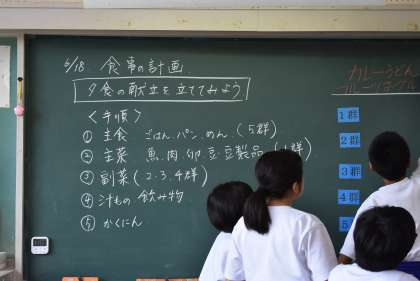 6/18 食事の計画
夕食の献立を立ててみよう
〈手順〉
① 主食 ごはん.パン.めん.(5群)
② 主菜 魚.肉.卵.豆.豆製品(1群)
③ 副菜(2.3.4群)
④ 汁もの 飲み物
⑤ かくにん
カレーうどん
フルーツポンチ
1群
2群
3群
4群
5